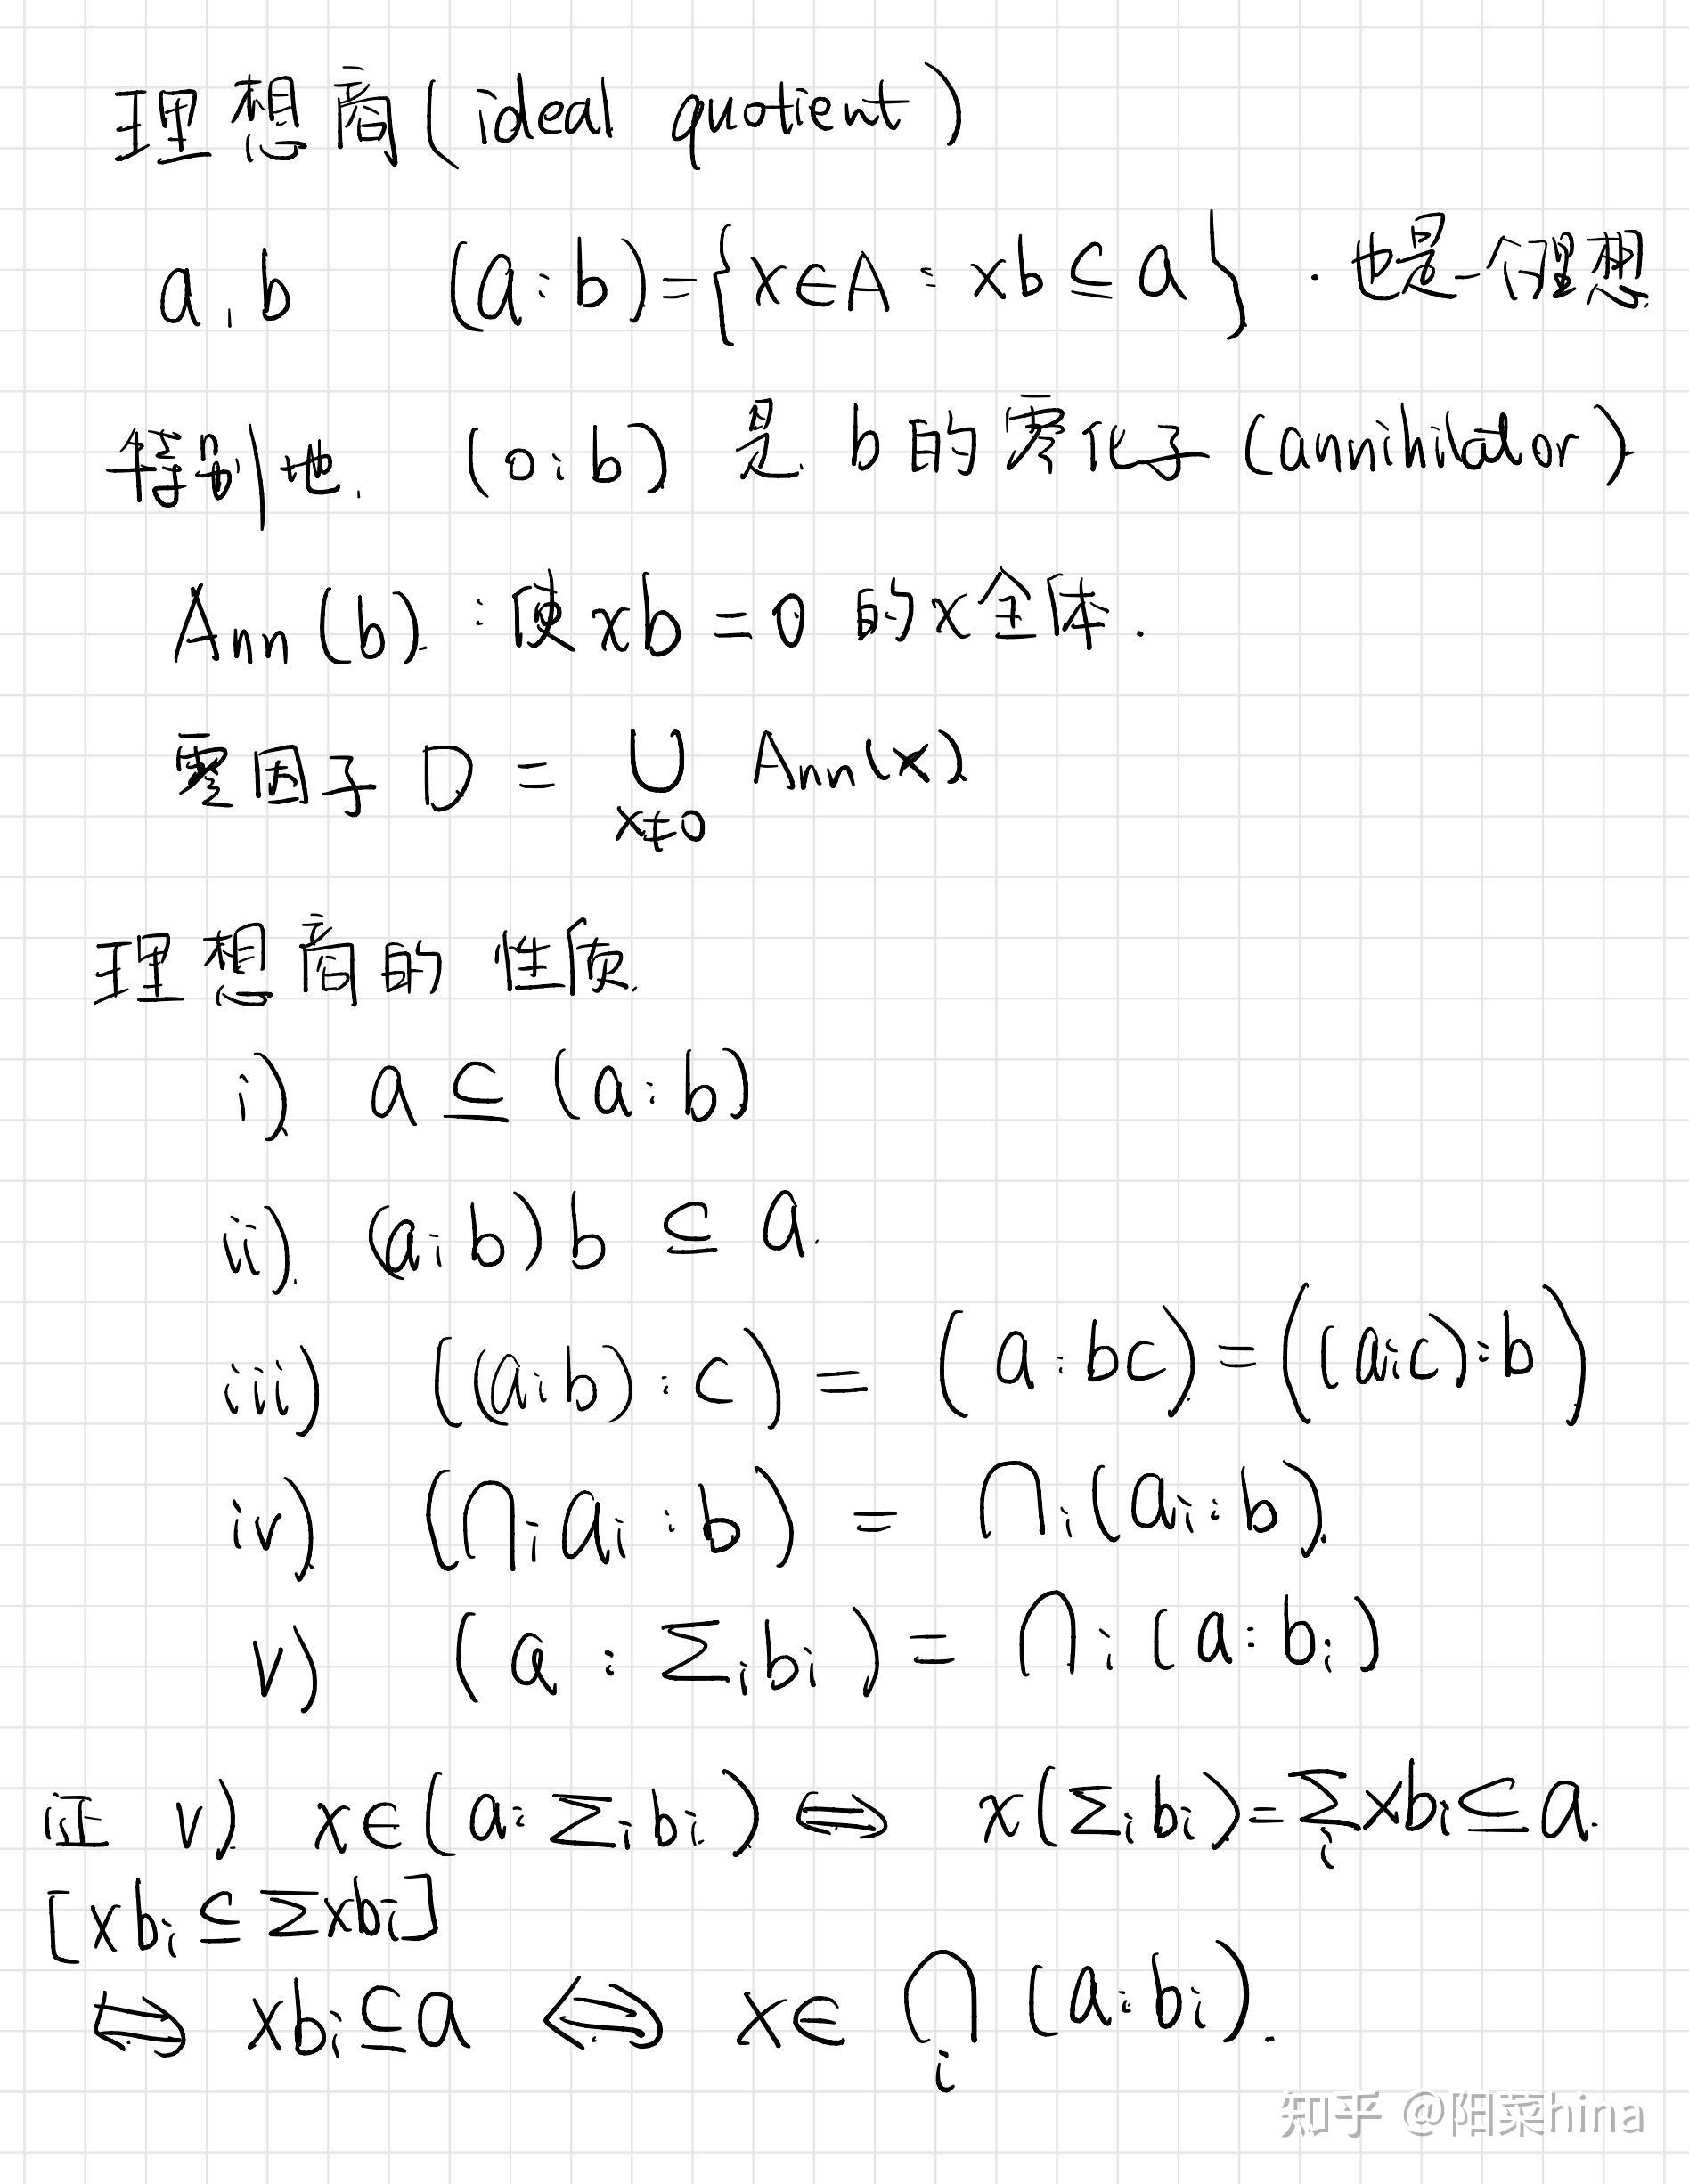 理想商(ideal quotient)
a, b (a:b)={x∈A : xb⊆a}. 也是一个理想.
特别地. (0:b) 是 b 的零化子(annihilator).
Ann(b). :使xb=0 的x全体.
零因子 D = ∪_{x≠0} Ann(x)
理想商的性质.
i) a ⊆ (a:b)
ii). (a:b)b ⊆ a.
iii) ((a:b):c) = (a:bc)=((a:c):b)
iv) (∩ᵢaᵢ:b) = ∩ᵢ(aᵢ:b).
v) (a : Σᵢbᵢ)= ∩ᵢ(a:bᵢ)
证 v) x∈(a:Σᵢbᵢ) ⇔ x(Σᵢbᵢ)=Σᵢxbᵢ⊆a.
[xbᵢ⊆Σxbᵢ]
⇔ xbᵢ⊆a ⇔ x∈ ∩ᵢ (a:bᵢ).
知乎 @阳菜hina